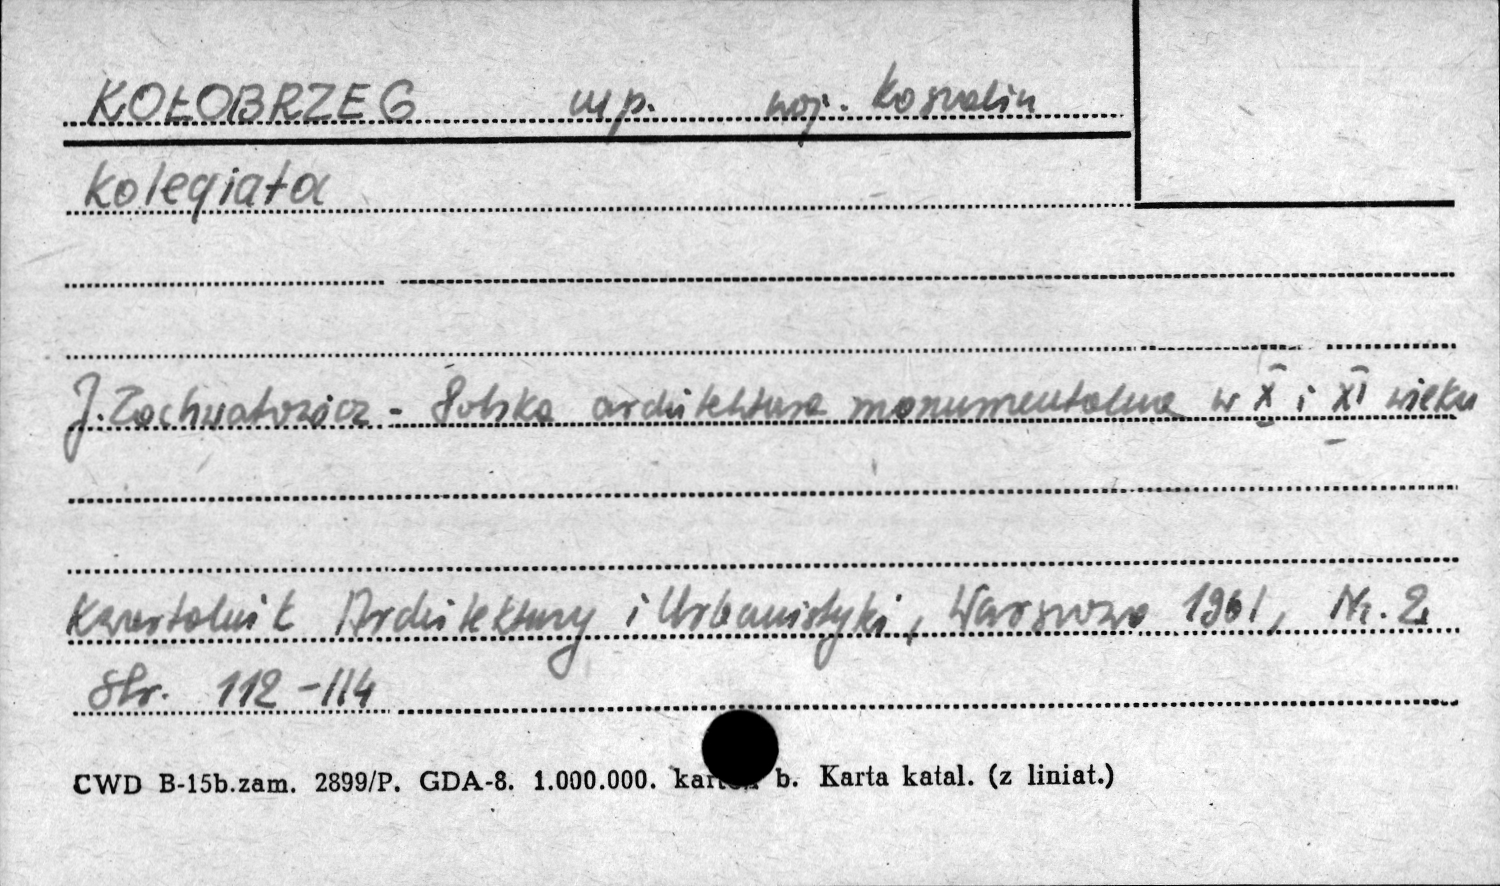 KOŁOBRZEG mp. woj. Koszalin
Kolegiata
J. Zachwatowicz - Polska architektura monumentalna w X i XI wieku
Kwartalnik Architektury i Urbanistyki, Warszawa 1961, Nr. 2
str. 112-114
CWD B-15b.zam. 2899/P. GDA-8. 1.000.000. karton b. Karta katal. (z liniat.)